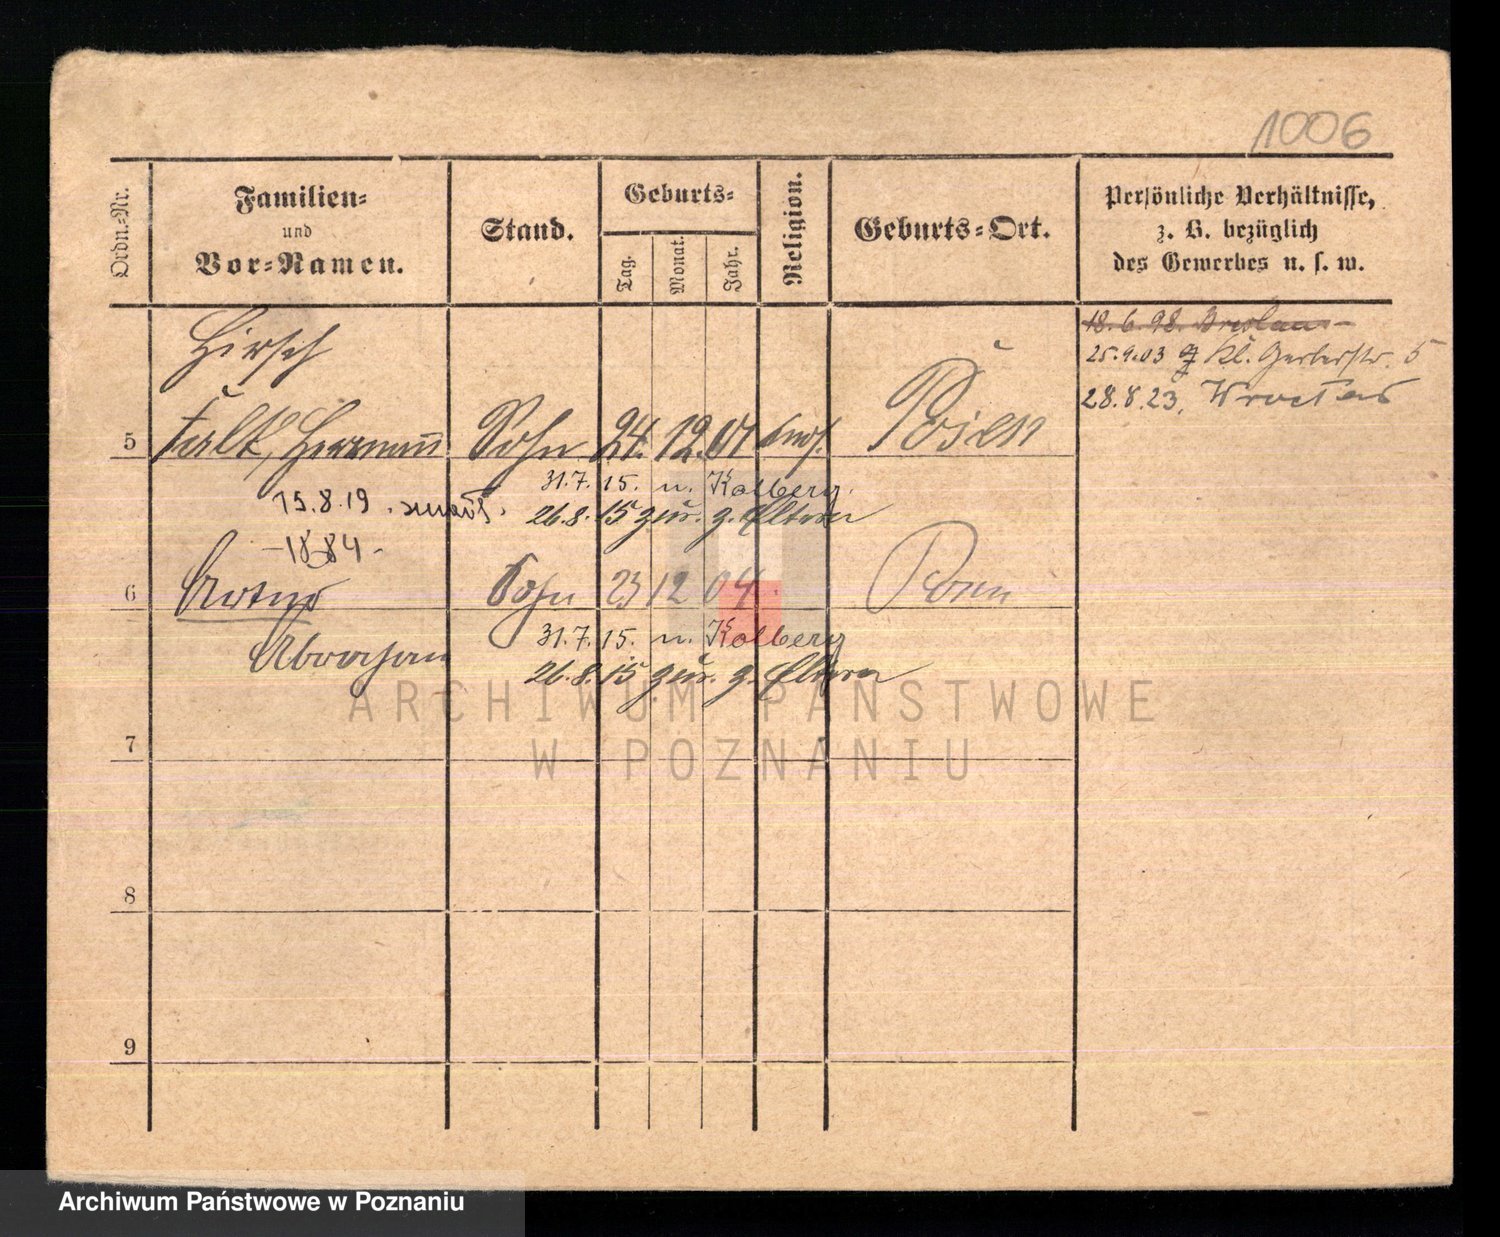 1006
Ordn.-Nr.
Familien-
und
Vor-Namen.
Stand.
Geburts-
Tag.
Monat.
Jahr.
Religion.
Geburts-Ort.
Persönliche Verhältnisse,
z. B. bezüglich
des Gewerbes u. s. w.
18.6.98. Breslau
25.9.03 Kl. Gerberstr. 5
28.8.23. Wrocław
Hirsch
5 Falk, Hermann Sohn 24. 12. 01 mos. Posen
31.7.15. n. Kolberg.
15.8.19.
26.8.15 zur. z. Eltern
-1884-
6 Artur Sohn 23 12 04 Posen
31.7.15. n. Kolberg
Abraham
26.8.15 zur. z. Eltern
7
8
9
ARCHIWUM PAŃSTWOWE
W POZNANIU
Archiwum Państwowe w Poznaniu